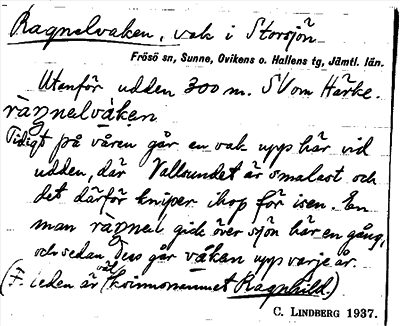 Ragnelvaken, vak i Storsjön
Frösö sn, Sunne, Ovikens o. Hallens tg, Jämtl. län.
Utanför udden 300 m. SV om Härke.
ràgnelvàken
Tidigt på våren går en vak upp här vid
udden, där Vallsundet är smalast och
det därför kniper ihop för isen. En
man ràgnel gick över sjön här en gång,
och sedan dess går vàken upp varje år.
(F. leden är väl kvinnonamnet Ragnhild.)
C. LINDBERG 1937.